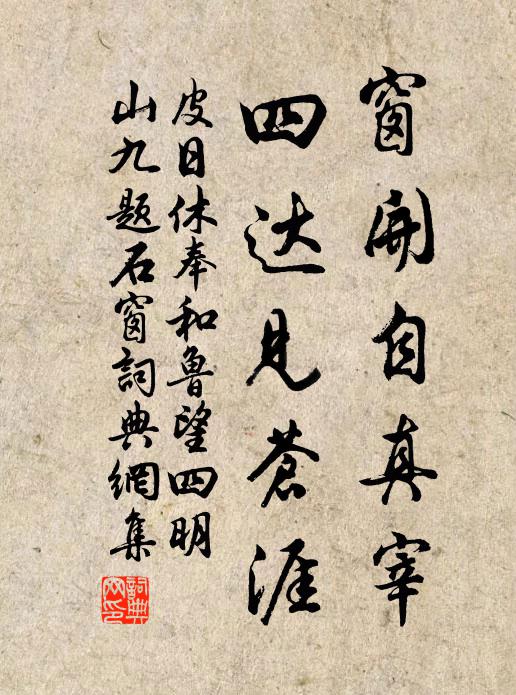 窗開自真宰
四达見蒼涯
皮日休奉和鲁望四明
山九题石窗詞典網集
詞典網印